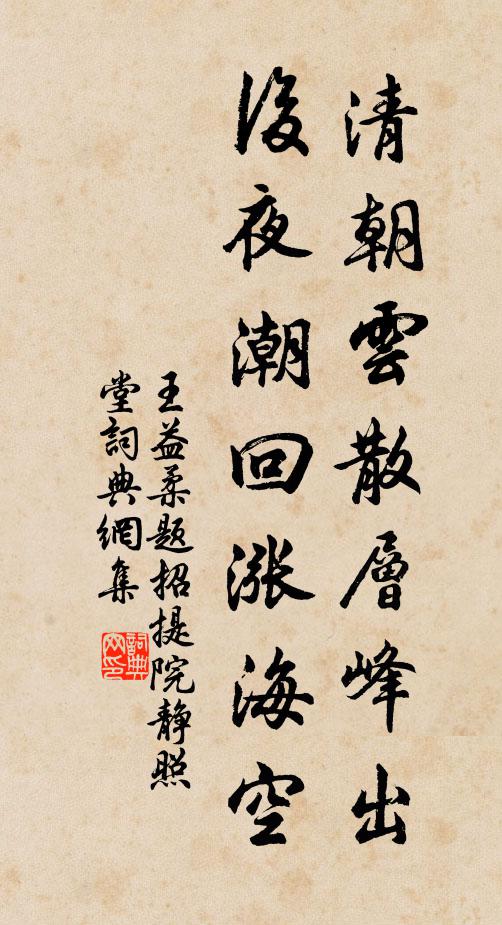 清朝雲散層峰出
後夜潮回漲海空
王益柔題招提院静照
堂詞典網集
詞典網印